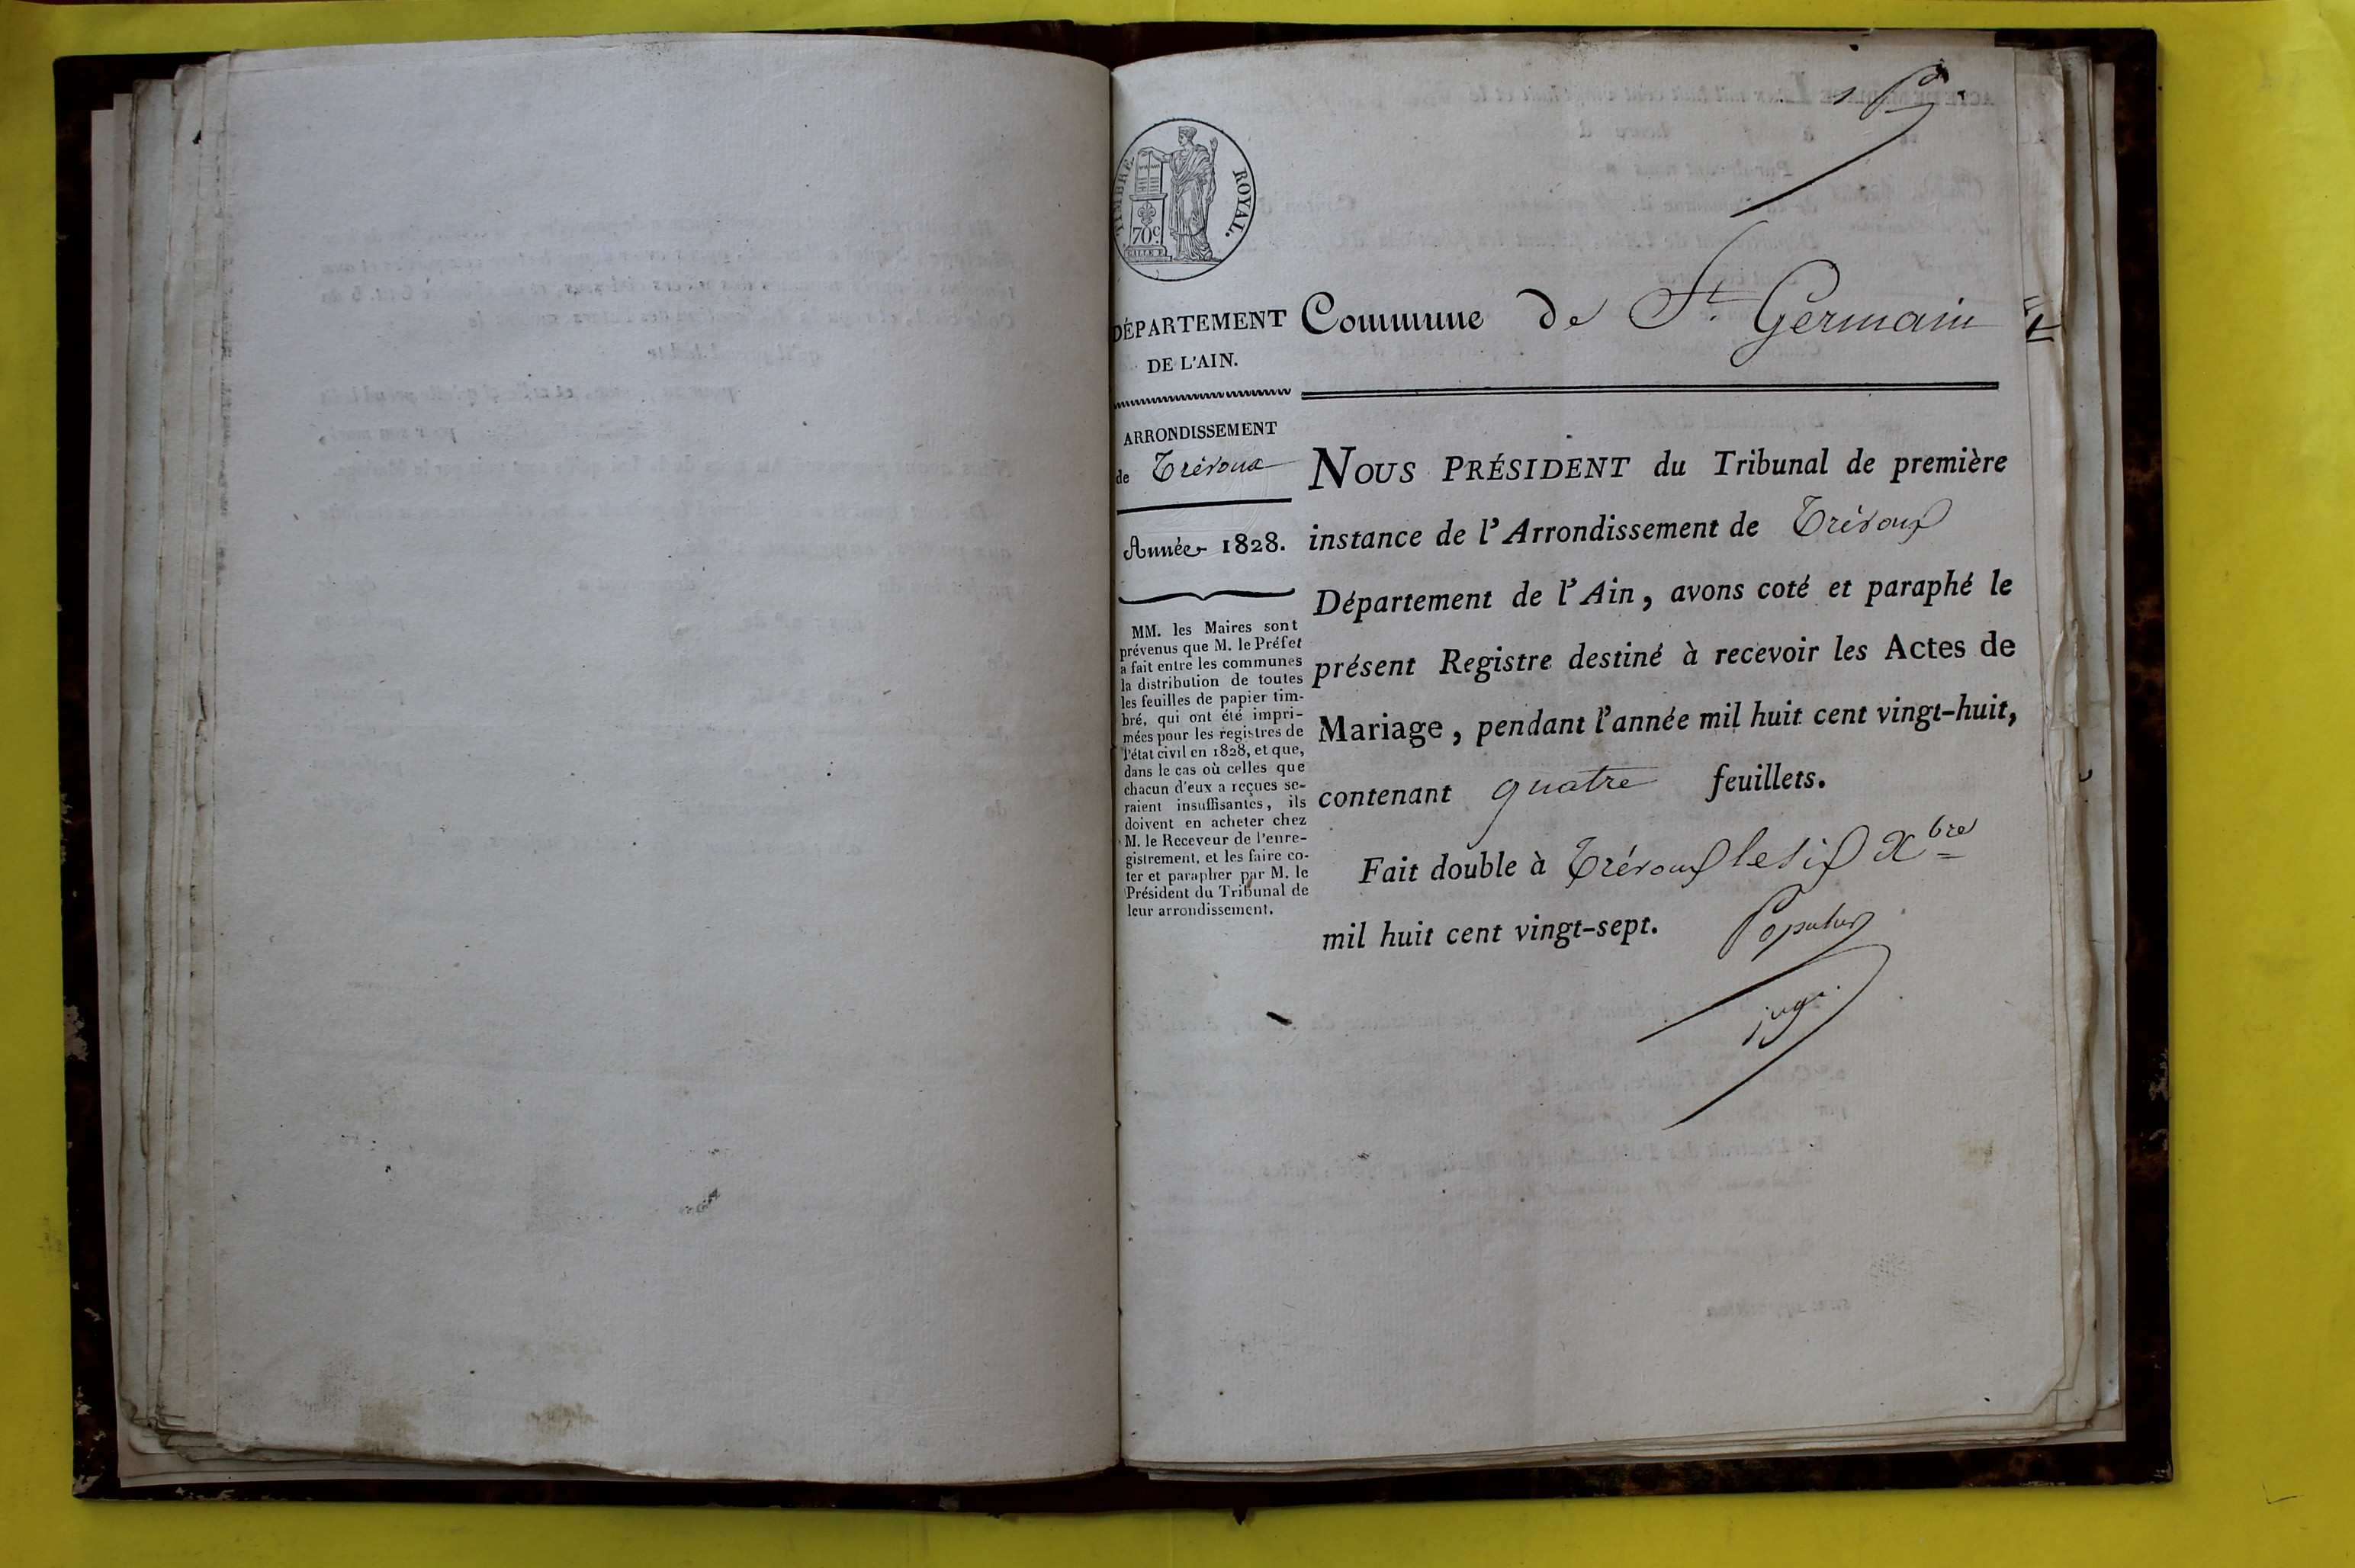 TIMBRE ROYAL.
70c.
DÉPARTEMENT
DE L'AIN.
Commune de St. Germain
ARRONDISSEMENT
de Trévoux
Année 1828.
MM. les Maires sont
prévenus que M. le Préfet
a fait entre les communes
la distribution de toutes
les feuilles de papier tim-
bré, qui ont été impri-
mées pour les registres de
l'état civil en 1828, et que,
dans le cas où celles que
chacun d'eux a reçues se-
raient insuffisantes, ils
doivent en acheter chez
M. le Receveur de l'enre-
gistrement, et les faire co-
ter et parapher par M. le
Président du Tribunal de
leur arrondissement.
NOUS PRÉSIDENT du Tribunal de première
instance de l'Arrondissement de Trévoux
Département de l'Ain, avons coté et paraphé le
présent Registre destiné à recevoir les Actes de
Mariage, pendant l'année mil huit cent vingt-huit,
contenant quatre feuillets.
Fait double à Trévoux le six Xbre
mil huit cent vingt-sept.
juge